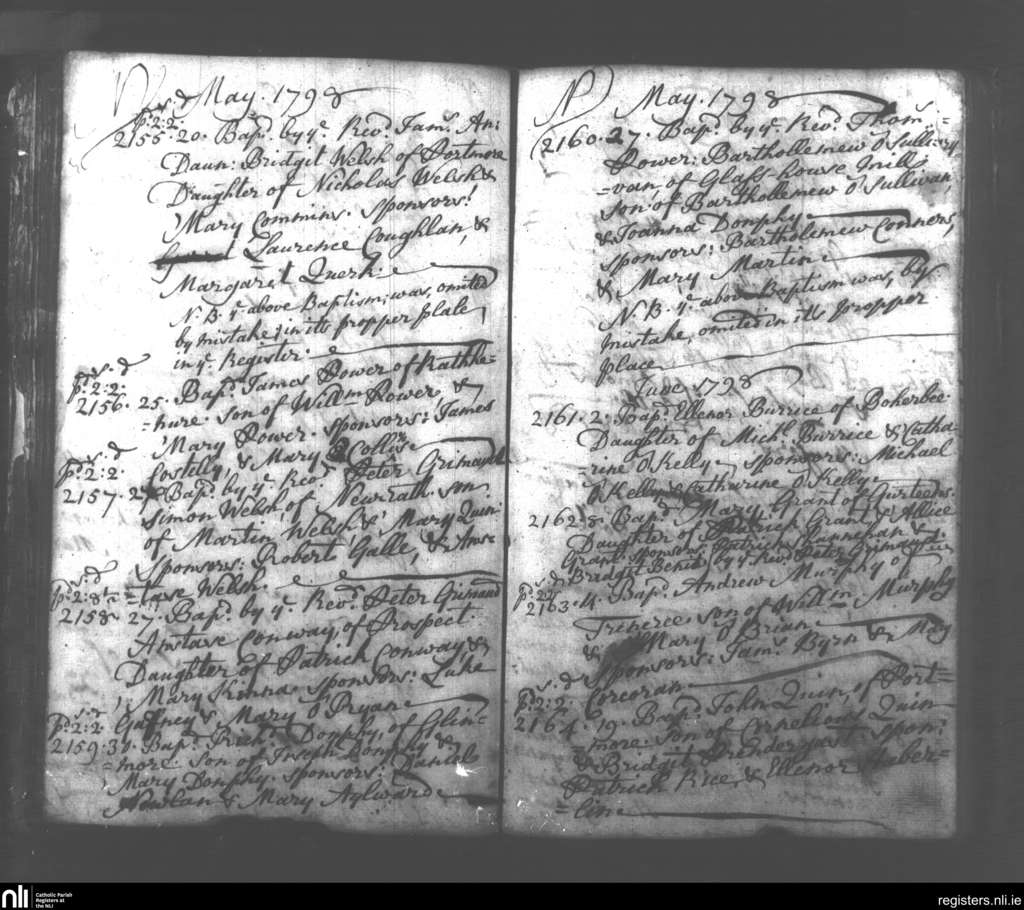 May. 1798
s. d
pd. 2:2
2155. 20. Bapd. by ye. Revd. Jams. An:
Daun: Bridget Welsh of Portmore
Daughter of Nicholas Welsh &
Mary Commins. Sponsors:
Laurence Coughlan, &
Margaret Querk:
N. B. ye. above Baptism, was, omited
by mistake, in its propper plate,
in ye. Register.
s. d
pd. 2:2:
2156. 25. Bapd. James Power of Rathke=
=hure. Son of Willm. Power &
Mary Power. Sponsors: James
Costelly, & Mary Collis
s. d
pd. 2:2.
2157. 27 Bapd. by ye. Revd. Peter Grimaud
Simon Welsh, of Newrath. Son
of Martin Welsh & Mary Quin:
Sponsors: Robert Galle, & Ans=
=tase Welsh.
s. d
pd. 2:8½
2158 27. Bapd. by ye. Revd. Peter Grimaud
Anstase Conway, of Prospect.
Daughter of Patrick Conway &
Mary Kinna Sponsors: Luke
Gafney & Mary O'Ryan
s. d
pd. 2:2
2159. 30. Bapd. Richd. Donphy, of Glin=
=more. Son of Joseph Donphy &
Mary Donphy. Sponsors: Daniel
Nowlan & Mary Aylward
May. 1798
2160. 27. Bapd. by ye. Revd. Thoms.=
Power: Bartholemew O'Sulli=
=van, of Glass-house Mill;
Son of Bartholemew O'Sullivan,
& Joanna Donphy
Sponsors: Bartholemew Conners,
& Mary Martin
N. B. ye. above Baptism was, by
mistake, omited in its propper
place
June 1798
2161. 2. Bapd. Ellenor Burrice of Bokerbee
Daughter of Michl. Burrice & Catha=
=rine O'Kelly Sponsors: Michael
O'Kelly & Catharine O'Kelly
2162. 8. Bapd. Mary Grant of Gurteens.
Daughter of Patrick Grant & Allice
Grant Sponsors: Patrick &
Bridget by ye Revd. Peter Grimaud
s. d
pd. 2:
2163. 14. Bapd. Andrew Murphy of
Son of Willm. Murphy
& Mary O'Briane
Sponsors: Jams. Byrn & May
Corcoran
s. d
pd. 2:2.
2164. 19. Bapd. John Quin, of Port=
=more. Son of Cornelious Quin
& Bridget Prendergast Spon:
Patrick Rice, & Ellenor Haber=
=line
nli
Catholic Parish
Registers at
the NLI
registers.nli.ie